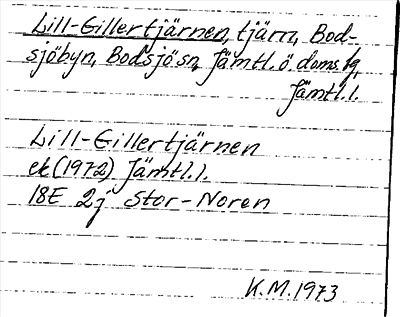 Lill-Gillertjärnen, tjärn, Bod-
sjöbyn, Bodsjö sn, Jämtl. ö. doms. tg,
Jämtl. l.
Lill-Gillertjärnen
ek (1972) Jämtl. l.
18E 2j Stor-Noren
K.M. 1973